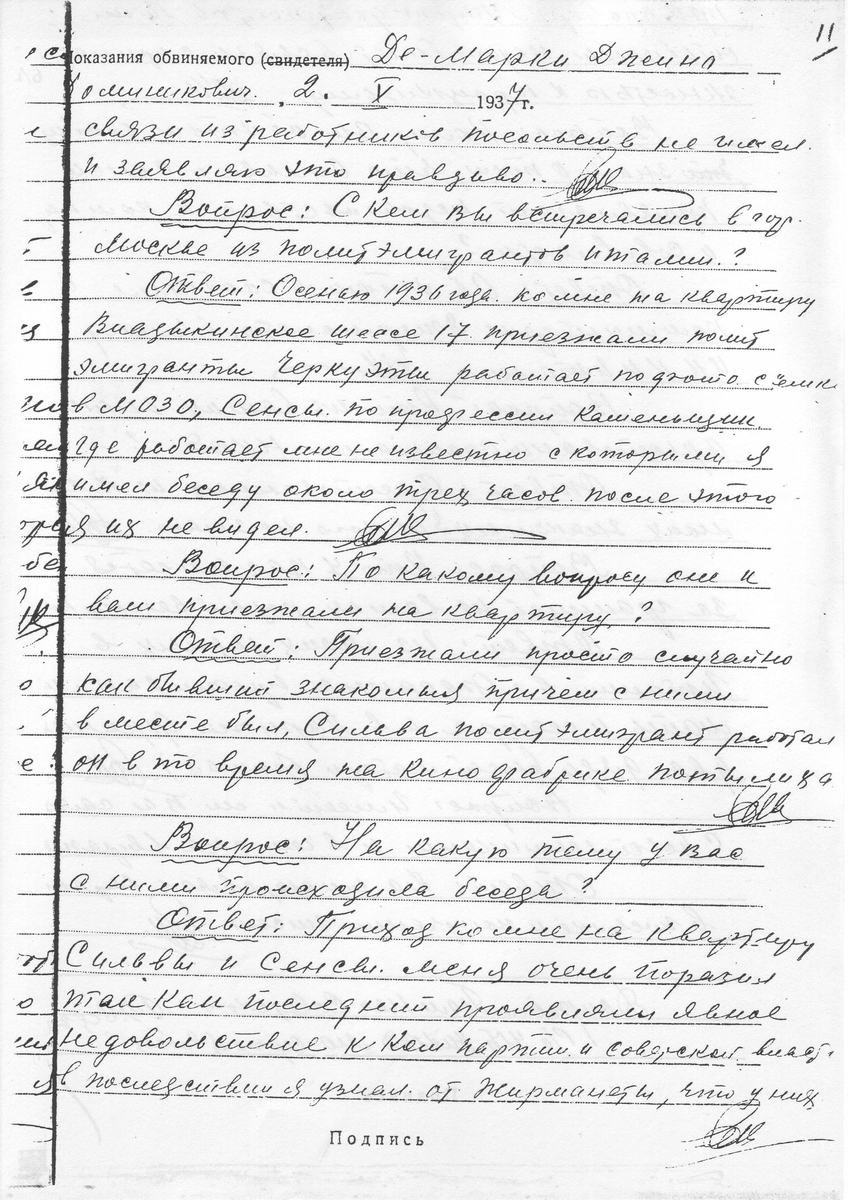 11
Показания обвиняемого (свидетеля) Де-Марки Джино
Доминикович. „2. X 1937 г.
связи из работников посольств не имел.
и заявляю это правдиво.
Вопрос: С кем вы встречались в гор.
Москве из политэмигрантов Италии?
Ответ: Осенью 1936 года. ко мне на квартиру
Владыкинское шоссе 17. приезжали полит
эмигранты работает по фото
в МОЗО, Сенсы. по профессии каменьщик.
где работает мне не известно с которыми я
имел беседу около трех часов. после этого
я их не видел.
Вопрос: По какому вопросу они к
вам приезжали на квартиру?
Ответ: Приезжали просто случайно
как бывший знакомыя причем с ними
в месте был, Сильва политэмигрант работал
он в то время на кинофабрике Потылиха
Вопрос: На какую тему у вас
с ними происходила беседа?
Ответ: Приход ко мне на квартиру
Сильвы и Сенсы. меня очень поразил
так как последний проявляли явное
недовольствие к компартии и советской власт.
в последствии я узнал. от Жирманеты, что у них
Подпись